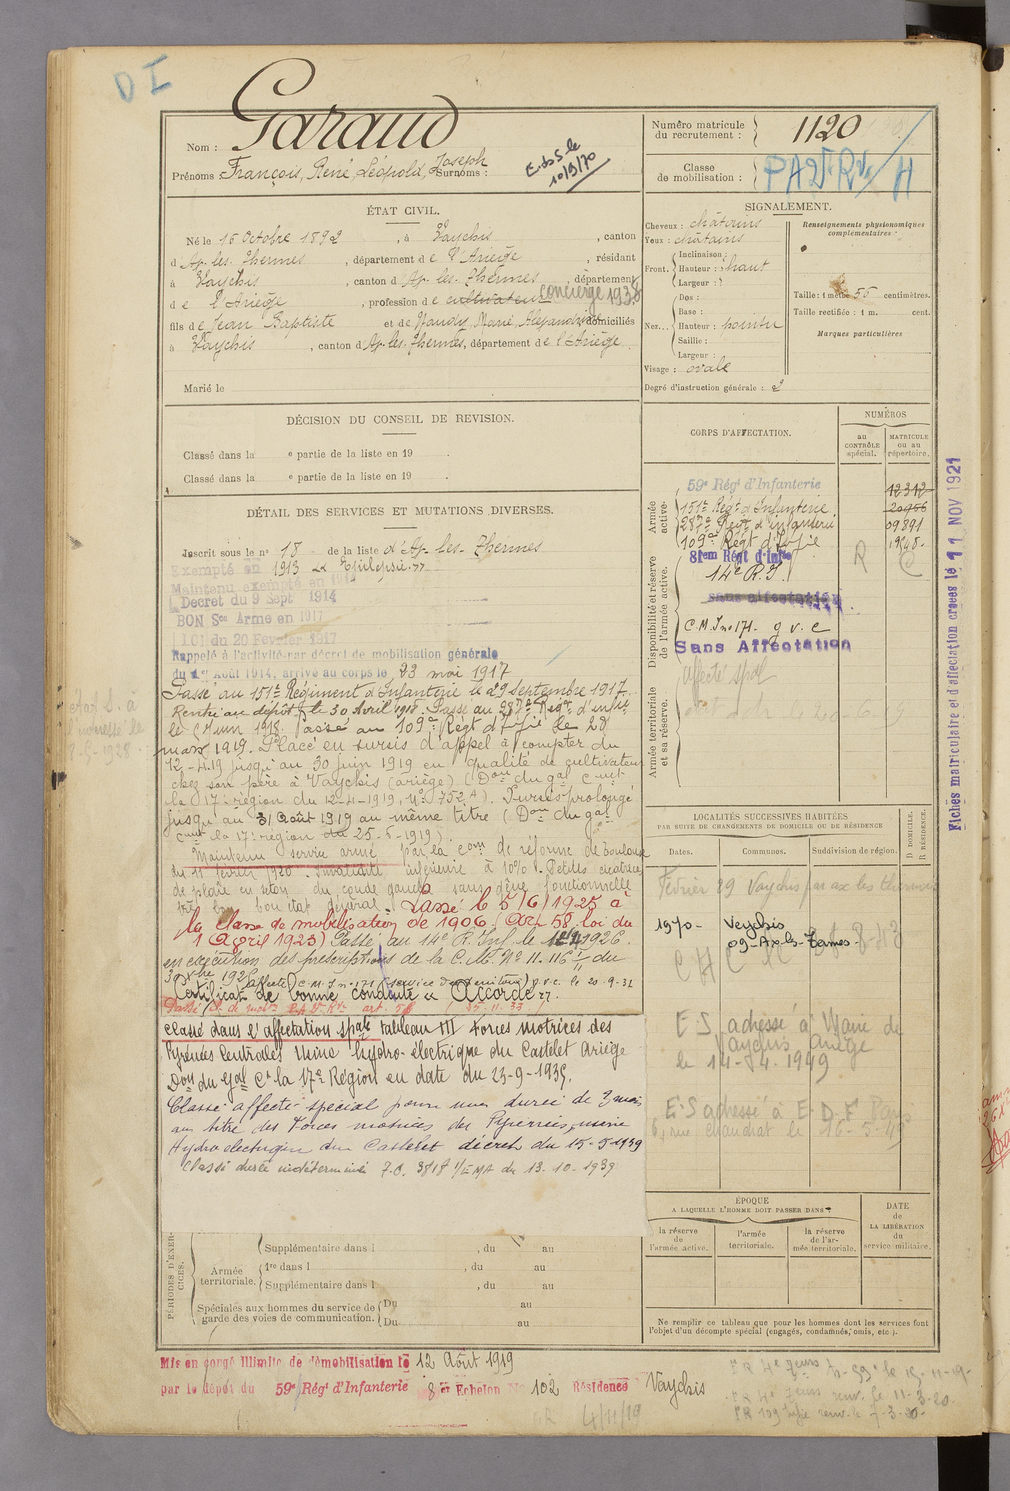 D I
Garaud
Nom :
Prénoms : François, René, Léopold, Joseph Surnoms :
E. de S. le
10/9/70
Numéro matricule
du recrutement : 1120
Classe
de mobilisation : PA2e Rve / H
ÉTAT CIVIL.
Né le 16 Octobre 1892, à Vaychis, canton
d'Ax-les-Thermes, département de l'Ariège, résidant
à Vaychis, canton d'Ax-les-Thermes, département
de l'Ariège, profession de cultivateur concierge 1938
fils de Jean Baptiste et de Naudy, Marie, Alexandrine domiciliés
à Vaychis, canton d'Ax-les-Thermes, département de l'Ariège
Marié le
SIGNALEMENT.
Cheveux : châtains
Yeux : châtains
Front. Inclinaison :
Hauteur : haut
Largeur :
Nez... Dos :
Base :
Hauteur : pointu
Saillie :
Largeur :
Visage : ovale
Degré d'instruction générale : 2
Renseignements physionomiques
complémentaires :
Taille : 1 mètre 55 centimètres.
Taille rectifiée : 1 m. cent.
Marques particulières
DÉCISION DU CONSEIL DE REVISION.
Classé dans la e partie de la liste en 19 .
Classé dans la e partie de la liste en 19 .
DÉTAIL DES SERVICES ET MUTATIONS DIVERSES.
Inscrit sous le n° 18 de la liste d'Ax-les-Thermes
Exempté en 1913 Epilepsie
Maintenu exempté en 1914
Decret du 9 Sept 1914
BON Sce Armé en 1917
Loi du 20 Fevrier 1917
Rappelé à l'activité par décret de mobilisation générale
du 1er Août 1914, arrivé au corps le 23 mai 1917
Passé au 151e Régiment d'Infanterie le 29 Septembre 1917.
Rentré au dépôt le 30 Avril 1918. Passé au 287e Régt d'infie
le 6 Juin 1918. Passé au 109e Régt d'Infie le 28
mars 1919. Placé en sursis d'appel à compter du
12-4-19 jusqu'au 30 juin 1919 en qualité de cultivateur
chez son père à Vaychis (ariège) (Don du gal Cmdt
la 17e région du 12-4-1919, No 752 A). Sursis prolongé
jusqu'au 31 Août 1919 au même titre (Don du gal
Cmdt la 17e région du 25-6-1919).
Maintenu service armé par la Com de réforme de Toulouse
du 11 février 1920. Invalidité inférieure à 10%. Petites cicatrices
de plaie en séton du coude gauche sans gêne fonctionnelle
très bon état général. Passé le 5/6/1925 à
la Classe de mobilisation de 1906 (Art 58 loi du
1 April 1923) Passé au 14e R. Inf. le 1926.
en exécution des prescriptions de la C.M. No 11.116 du
1926 affecté C.M.I no 171 (Service des territoire) g.v.c. le 20-9-31
Certificat de bonne conduite "Accordé".
Classé dans l'affectation spale tableau III Forces motrices des
Pyrénées Centrales Usine hydro-électrique du Castelet Ariège
Don du Gal Ct la 17e Région en date du 23-9-1935.
Classé affecté spécial pour une durée de 3 mois
au titre des Forces motrices des Pyrénées, usine
Hydro électrique du Castelet décret du 15-5-1939
Classé durée indéterminée F.O. 3818 1/EMA du 13-10-1939
CORPS D'AFFECTATION.
NUMÉROS
au
CONTRÔLE
spécial.
MATRICULE
ou au
répertoire.
Armée
active.
59e Régt d'Infanterie 12312
151e Régt d'Infanterie 20966
287e Régt d'infanterie 09891
109e Régt d'Infie
Disponibilité et réserve
de l'armée active.
81em Régt d'Infie
14e R.I.
sans affectation
C.M.I no 171 - g v c
Sans Affectation
Armée territoriale
et sa réserve.
affecté spal
R
Fiches matriculaire et d'affectation créées le 11 NOV 1921
LOCALITÉS SUCCESSIVES HABITÉES
PAR SUITE DE CHANGEMENTS DE DOMICILE OU DE RÉSIDENCE
D DOMICILE.
R RÉSIDENCE.
Dates. Communes. Subdivision de région.
Février 29 Vaychis par ax les thermes
1970 - Vaychis
09-Ax-les-Termes
E S adressé à Maire de
Vaychis Ariège
le 14-4-1949
E.S adressé à E D F Paris
rue Chaudrat le 16-5-45
ÉPOQUE
A LAQUELLE L'HOMME DOIT PASSER DANS
la réserve
de
l'armée active.
l'armée
territoriale.
la réserve
de l'ar-
mée territoriale.
DATE
de
LA LIBÉRATION
du
service militaire.
Ne remplir ce tableau que pour les hommes dont les services font
l'objet d'un décompte spécial (engagés, condamnés, omis, etc.).
PÉRIODES D'EXER-
CICES.
Supplémentaire dans l , du au
Armée
territoriale.
1re dans l , du au
Supplémentaire dans l , du au
Spéciales aux hommes du service de
garde des voies de communication.
Du au
Du au
Mis en congé illimité de démobilisation le 12 Août 1919
par le dépôt du 59e Régt d'Infanterie 8e Echelon No 102 Résidence Vaychis
4/11/19